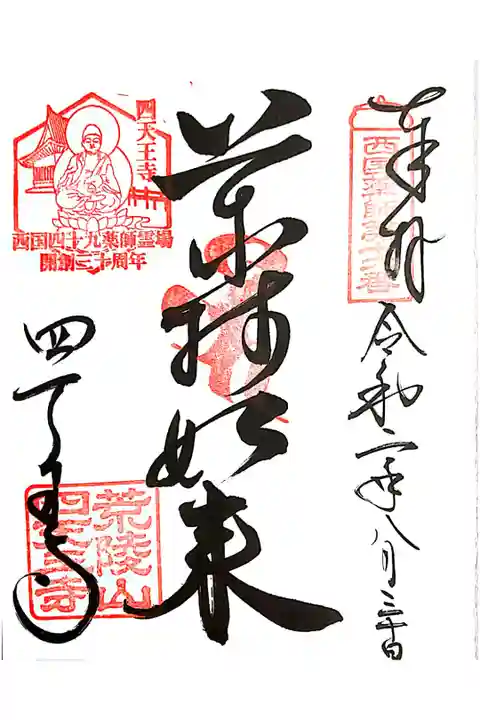 奉拝
令和二年八月三十日
薬師如来
四天王寺
西国四十九薬師霊場
開創三十周年
四天王寺
荒陵山
四天王寺